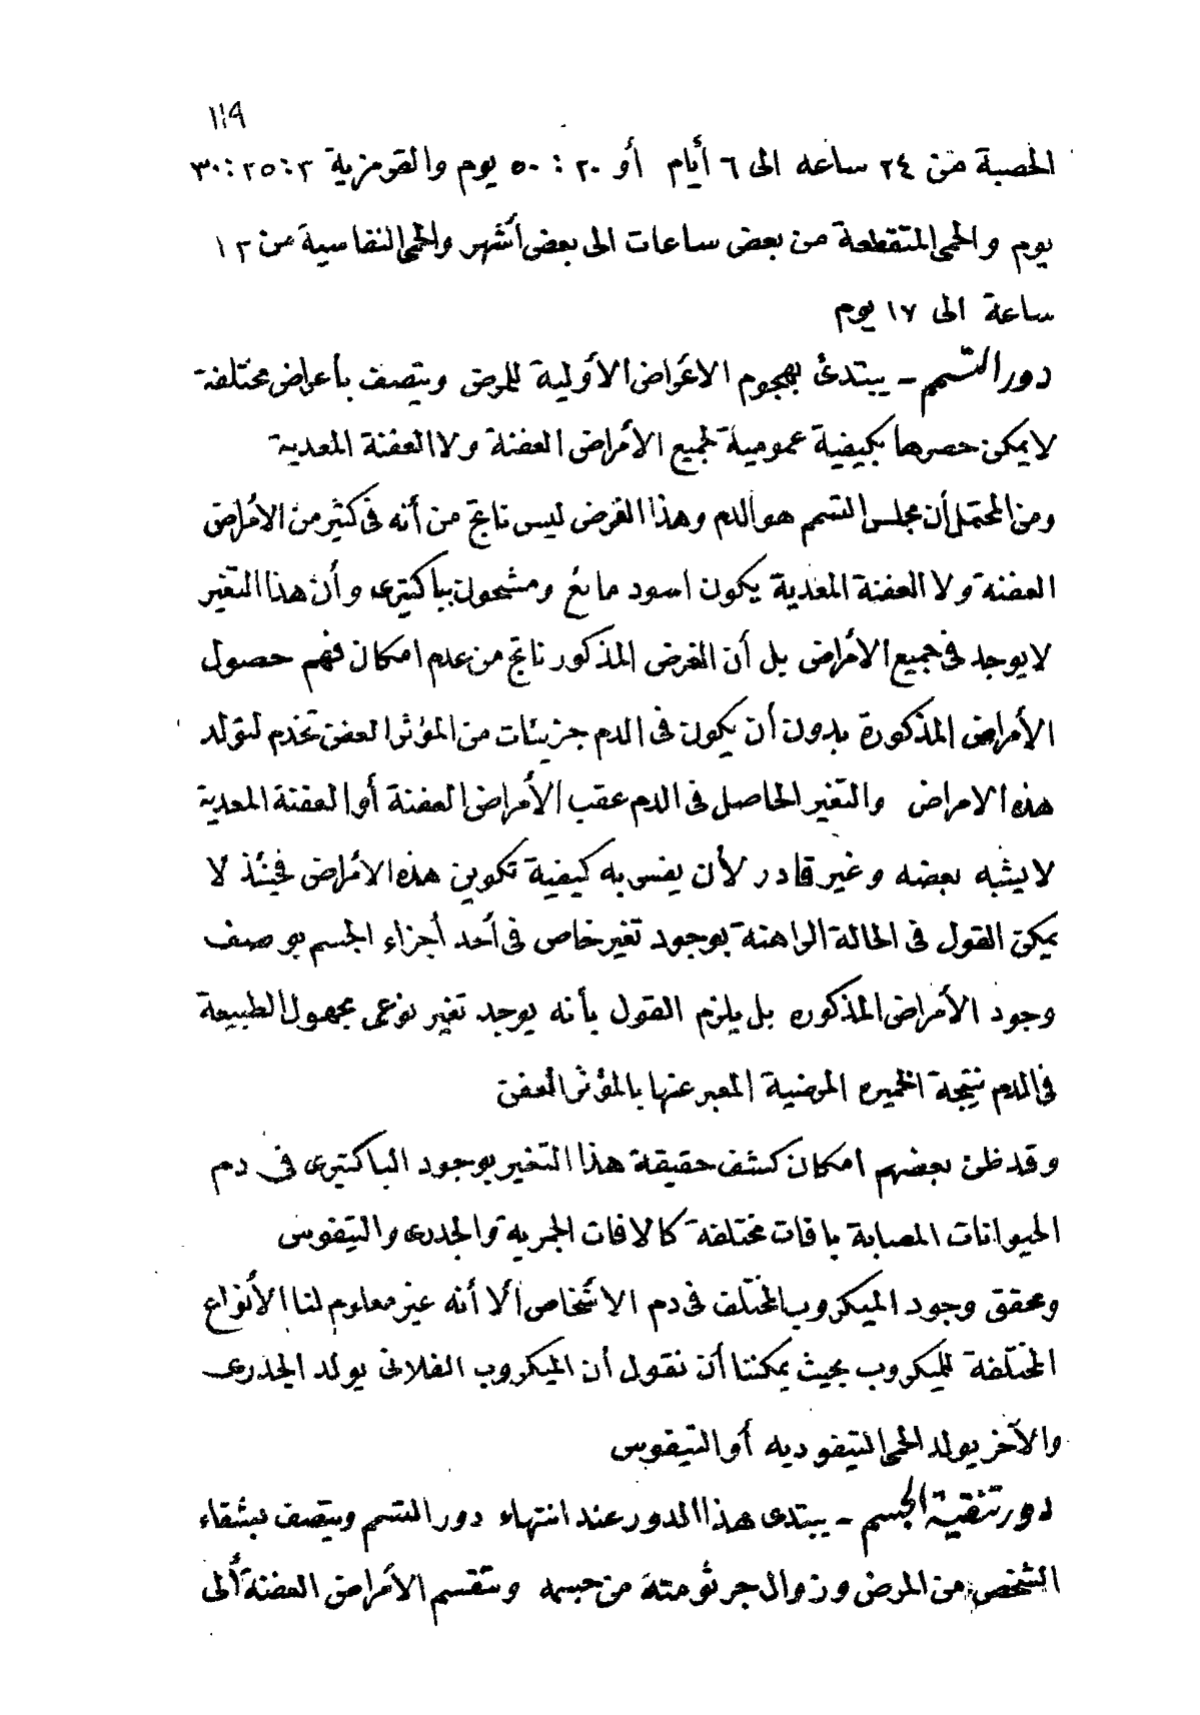 ١١٩
الحصبة من ٢٤ ساعه الى ٦ أيام أو ٢٠ : ٥٠ يوم والقرمزية ٣:٢٥:٣٠
يوم والحمى المتقطعة من بعض ساعات الى بعض أشهر والحمى النفاسية من ١٢
ساعة الى ١٧ يوم
دور التسمم ـ يبتدئ بهجوم الاعراض الأولية للمرض ويتصف بأعراض مختلفة
لا يمكن حصرها بكيفية عمومية لجميع الأمراض العفنة ولا العفنة المعدية
ومن المحتمل أن مجلس التسمم هو الدم وهذا الفرض ليس ناتج من أنه فى كثير من الأمراض
العفنة ولا العفنة المعدية يكون اسود مائع ومشحون بباكتيرى وأن هذا التغير
لا يوجد فى جميع الأمراض بل أن الفرض المذكور ناتج من عدم امكان فهم حصول
الأمراض المذكورة بدون أن يكون فى الدم جزيئات من المؤثر العفن تخدم لتولد
هذه الامراض والتغير الحاصل فى الدم عقب الأمراض العفنة أو العفنة المعدية
لا يشبه بعضه وغير قادر لأن يفسر به كيفية تكوين هذه الأمراض فحينئذ لا
يمكن القول فى الحالة الراهنة بوجود تغير خاص فى أحد أجزاء الجسم يوصف
وجود الأمراض المذكوره بل يلزم القول بأنه يوجد تغير نوعى مجهول الطبيعة
فى الدم نتيجة الخميره المرضية المعبر عنها بالمؤثر العفن
وقد ظن بعضهم امكان كشف حقيقة هذا التغير بوجود الباكتيرى فى دم
الحيوانات المصابة بافات مختلفة كالافات الجمرية والجدرى والتيفوس
ومحقق وجود الميكروب المختلف فى دم الاشخاص ألا أنه غير معلوم لنا الأنواع
المختلفة للميكروب بحيث يمكننا أن نقول أن الميكروب الفلانى يولد الجدرى
والآخر يولد الحمى التيفوديه أو التيفوس
دور تنقية الجسم ـ يبتدى هذا الدور عند انتهاء دور التسمم ويتصف بشفاء
الشخص من المرض وزوال جرثومته من جسمه وتنقسم الأمراض العفنة ألى